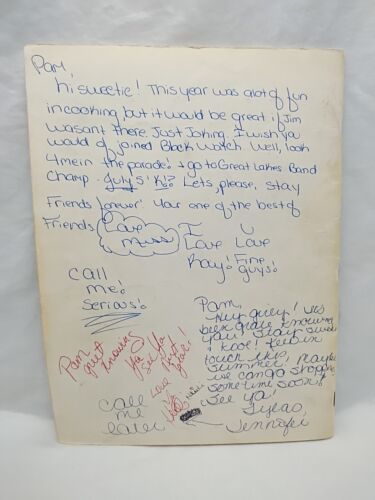 Pam,
hi sweetie! This year was alot of fun
in cooking, but it would be great if Jim
wasant there. Just Joking. I wish ya
would of joined Black Watch. Well, look
4 me in the parade! & go to Great Lakes Band
Champ. July 5 'K!? Lets, please, stay
Friends forever! Your one of the best of
Friends
Love
I U
Love Love
Kay! Fine
guys!
call
me!
serious!
Pam,
Hey guey! It's
been great knowing
you! Stay sweet
& kool! Keep in
touch this
summer. Maybe
we can go shopping
some time soon!!
See ya!
Jennifer
Pam
great
knowing
You
See Ya
next
year!
Love
call
me
later